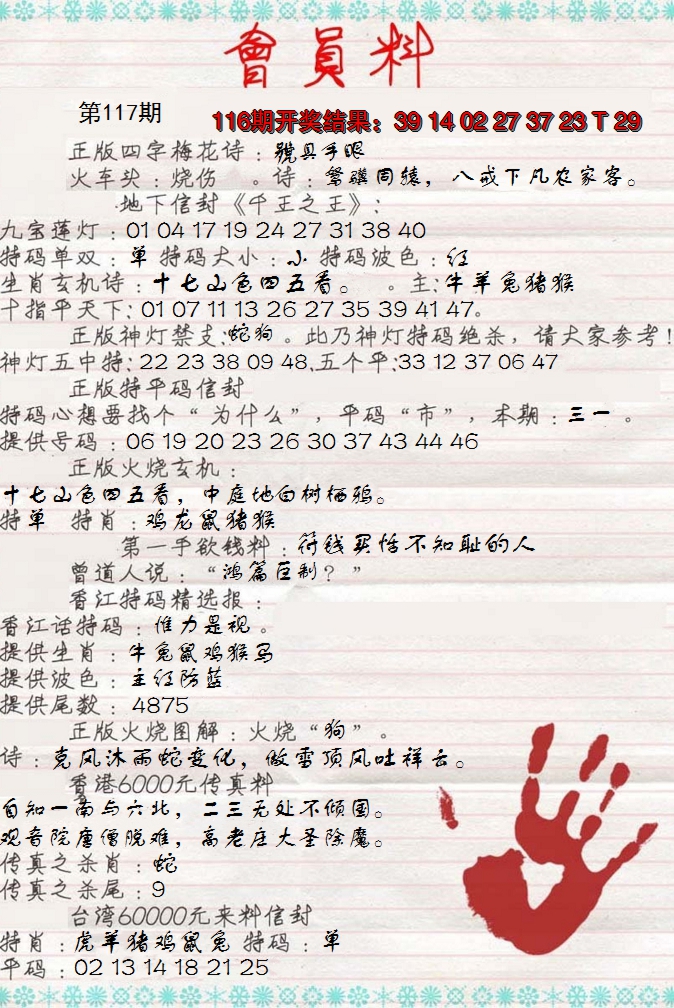 會員料
第117期
116期开奖结果：39 14 02 27 37 23 T 29
正版四字梅花诗：號具手眼
火车头：烧伤 。诗：驽骥同辕，八戒下凡农家客。
地下信封《千王之王》：
九宝莲灯：01 04 17 19 24 27 31 38 40
特码单双：单 特码大小：小 特码波色：红
生肖玄机诗：十七山色四五看。 。主：牛羊兔猪猴
十指平天下：01 07 11 13 26 27 35 39 41 47。
正版神灯禁支：蛇狗。此乃神灯特码绝杀，请大家参考！
神灯五中特：22 23 38 09 48.五个平：33 12 37 06 47
正版特平码信封
特码心想要找个“为什么”，平码“市”，本期：三一。
提供号码：06 19 20 23 26 30 37 43 44 46
正版火烧玄机：
十七山色四五看，中庭地白树栖鸦。
特单 特肖：鸡龙鼠猪猴
第一手欲钱料：符钱买恬不知耻的人
曾道人说：“鸿篇巨制？”
香江特码精选报：
香江话特码：惟力是视。
提供生肖：牛兔鼠鸡猴马
提供波色：主红防蓝
提供尾数：4875
正版火烧图解：火烧“狗”。
诗：克风沐雨蛇变化，傲雪顶风吐祥云。
香港6000元传真料
自知一南与六北，二三无处不倾国。
观音院唐僧脱难，高老庄大圣除魔。
传真之杀肖：蛇
传真之杀尾：9
台湾60000元来料信封
特肖：虎羊猪鸡鼠兔 特码：单
平码：02 13 14 18 21 25